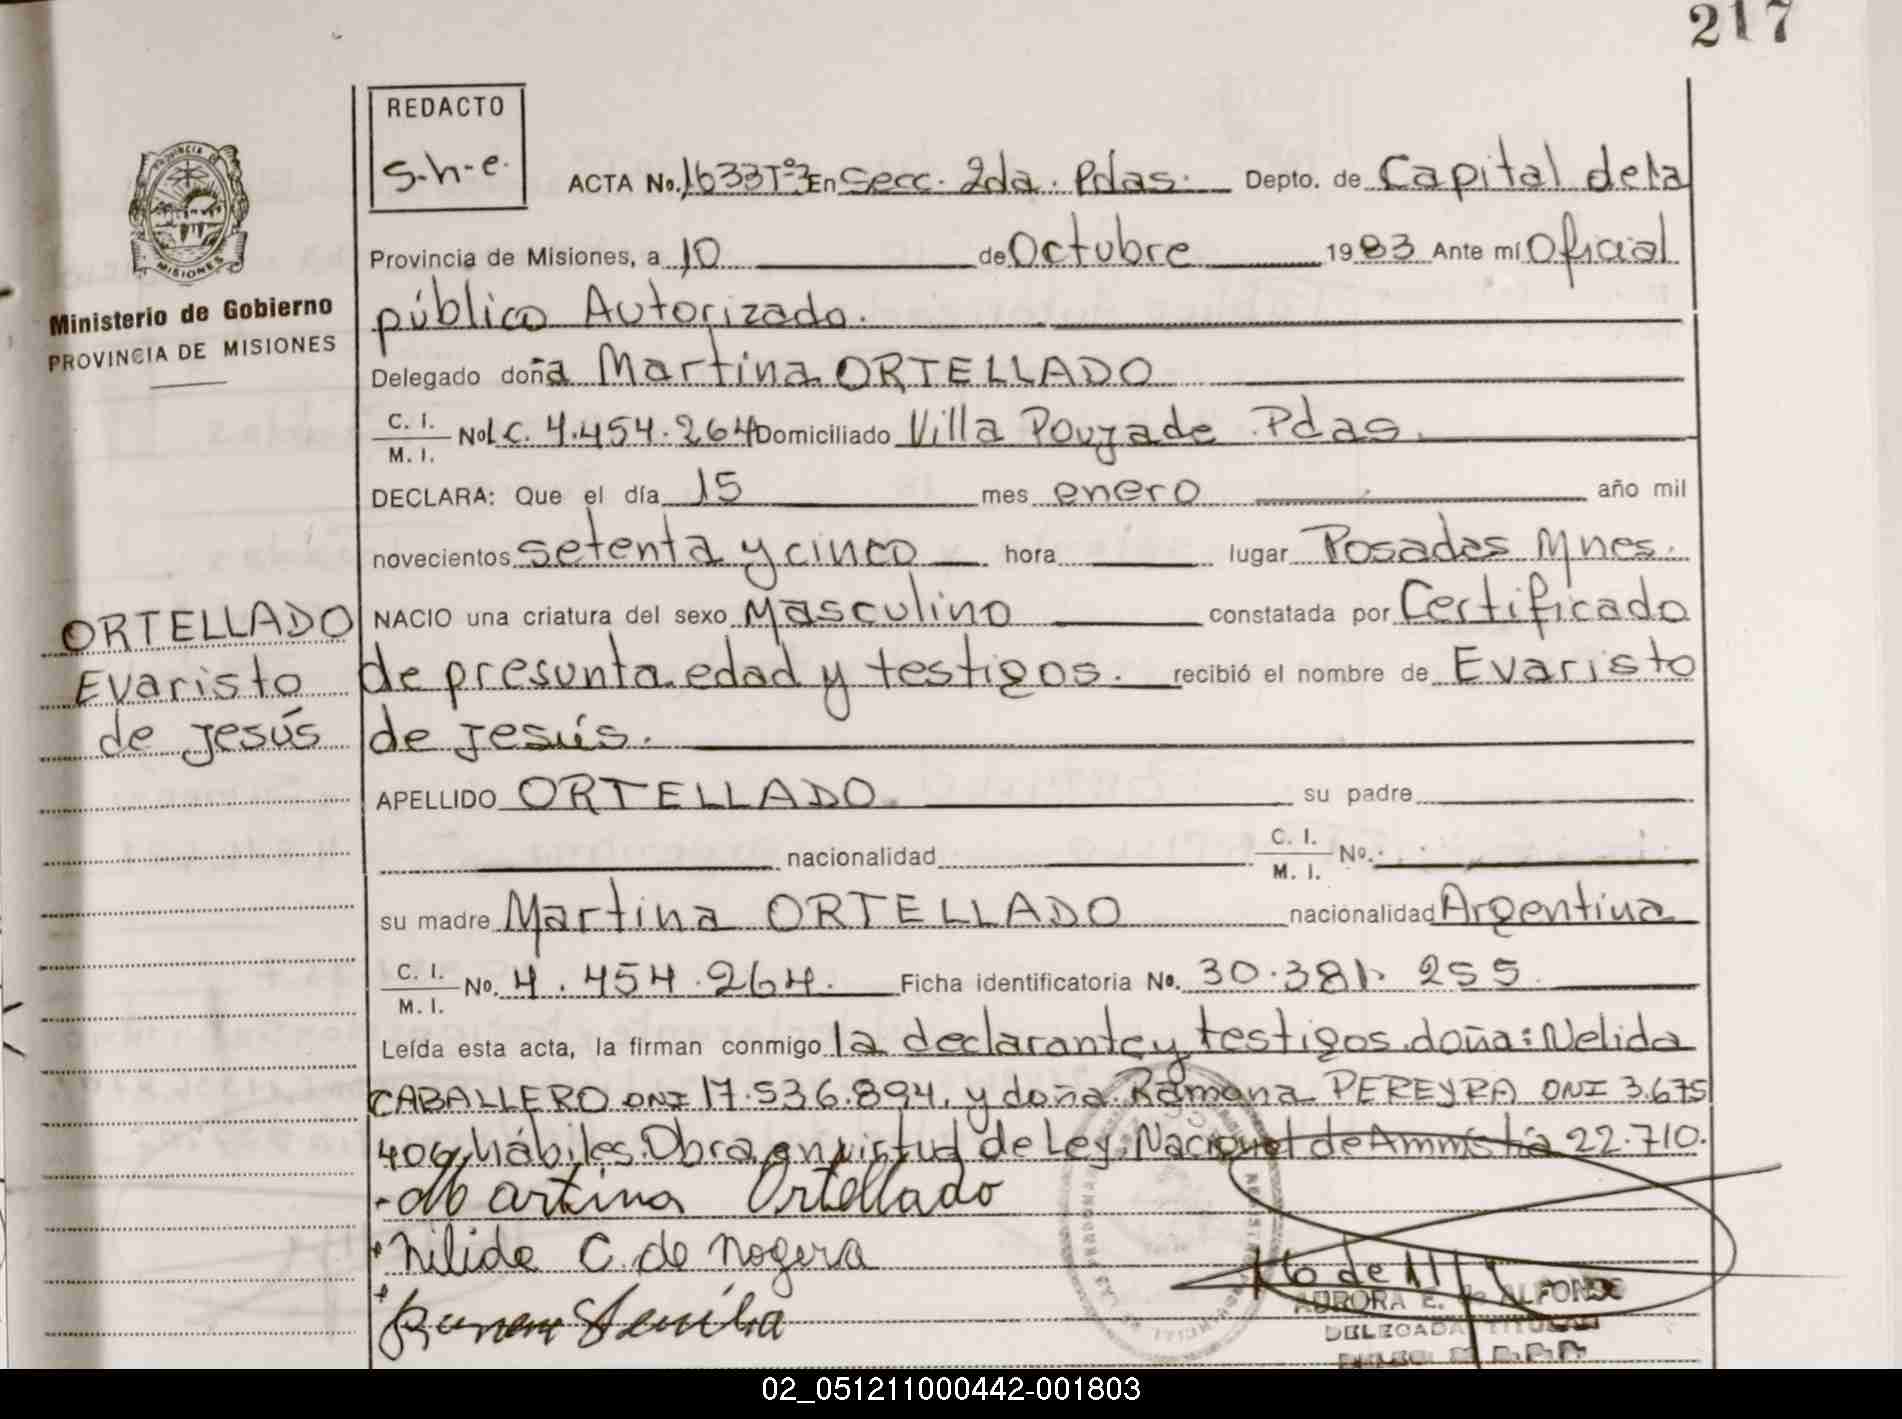 217
REDACTO
s-h-e.
PROVINCIA DE
MISIONES
Ministerio de Gobierno
PROVINCIA DE MISIONES
ACTA No. 1633 Tº3 En Secc. 2da. Pdas. Depto. de Capital de la
Provincia de Misiones, a 10 de Octubre 1983 Ante mí Oficial
público Autorizado.
Delegado doña Martina ORTELLADO
C. I.
M. I. No L.C. 4.454.264 Domiciliado Villa Poujade Pdas.
DECLARA: Que el día 15 mes enero año mil
novecientos setenta y cinco hora lugar Posadas Mnes.
NACIO una criatura del sexo Masculino constatada por Certificado
de presunta edad y testigos. recibió el nombre de Evaristo
de Jesús.
ORTELLADO
Evaristo
de Jesús
APELLIDO ORTELLADO. su padre
nacionalidad C. I.
M. I. No.
su madre Martina ORTELLADO nacionalidad Argentina
C. I.
M. I. No. 4.454.264. Ficha identificatoria No. 30.381.255.
Leída esta acta, la firman conmigo la declarante y testigos doña: Nelida
CABALLERO DNI 17.536.894, y doña Ramona PEREYRA DNI 3.675
406, hábiles. Obra en virtud de Ley Nacional de Amnistía 22.710.
Martina Ortellado
Nilida C. de Nogera
16 de 11
AURORA E. de ALFONSO
DELEGADA TITULAR
02_051211000442-001803